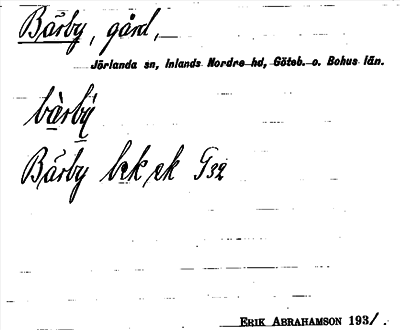 Bärby, gård,
Jörlanda sn, Inlands Nordre hd, Göteb. o. Bohus län.
bàrbý
Bärby bek ek G32
ERIK ABRAHAMSON 193/.